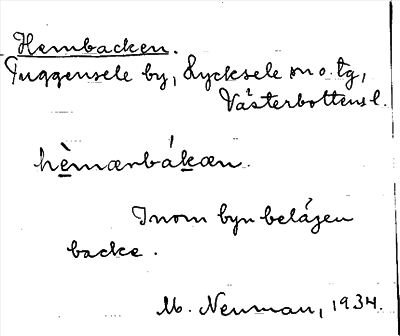 Hembacken.
Tuggensele by, Lycksele sn o. tg,
Västerbottens l.
hè̱mærbák̲æn.
Inom byn belägen
backe.
M. Neuman, 1934.